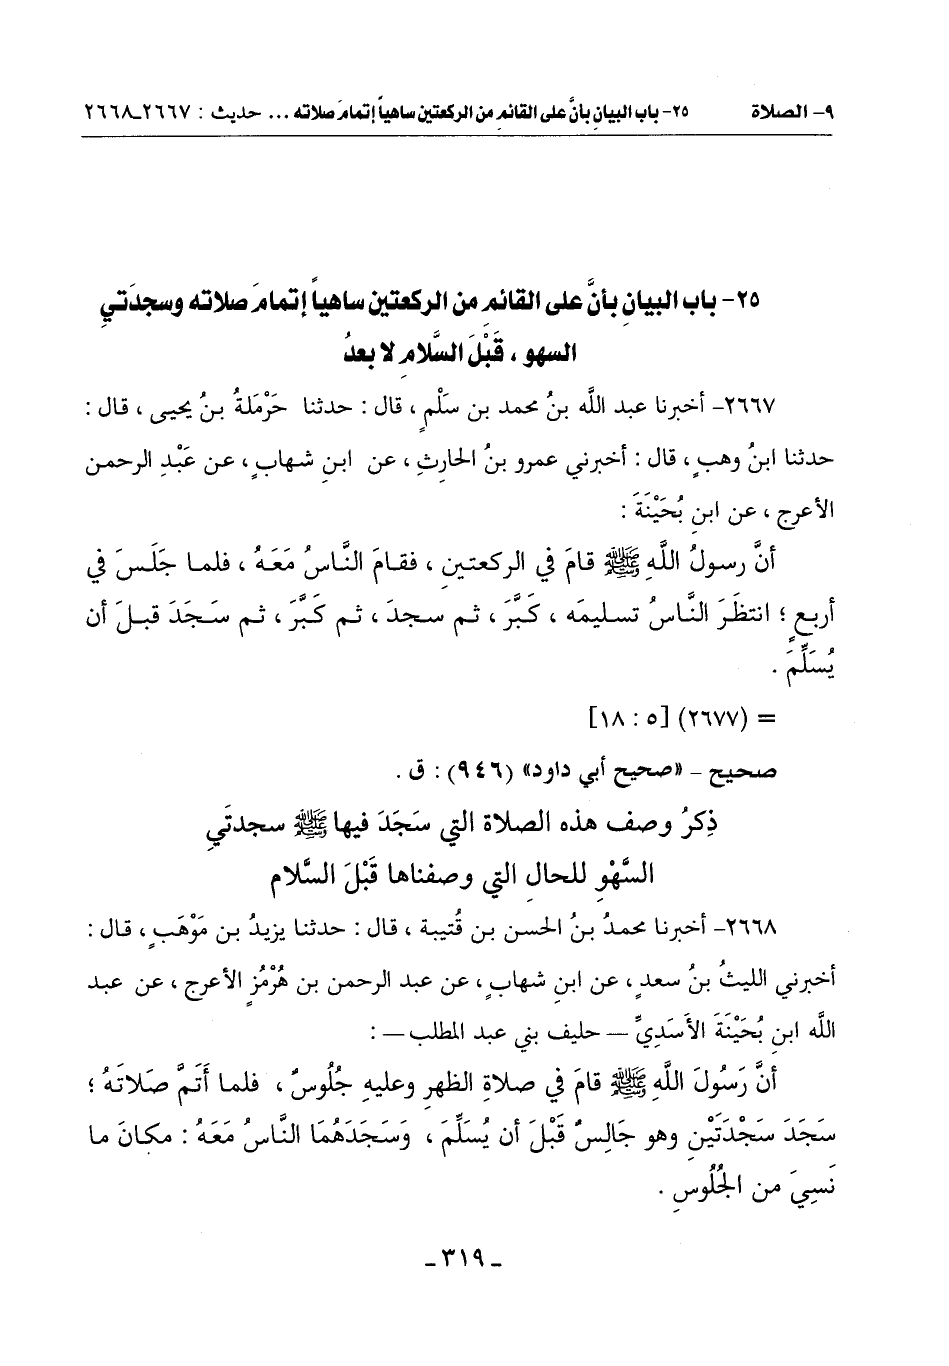 ٩- الصلاة ٢٥- باب البيانِ بأنَّ على القائم من الركعتين ساهياً إتمامَ صلاته ... حديث : ٢٦٦٧-٢٦٦٨
٢٥- باب البيانِ بأنَّ على القائم من الركعتين ساهياً إتمامَ صلاته وسجدَتيِ
السهو ، قَبْلَ السَّلامِ لا بعدُ
٢٦٦٧- أخبرنا عبد اللَّه بنُ محمد بن سَلْمٍ ، قال : حدثنا حَرْمَلةُ بنُ يحيى ، قال :
حدثنا ابنُ وهبٍ ، قال : أخبرني عمرو بنُ الحارثِ ، عن ابنِ شهابٍ ، عن عَبْدِ الرحمن
الأعرج ، عن ابنِ بُحَيْنَةَ :
أنَّ رسولُ اللَّهِ ﷺ قامَ في الركعتينِ ، فقامَ النَّاسُ مَعَهُ ، فلما جَلَسَ في
أربعٍ ؛ انتظَرَ النَّاسُ تسليمَه ، كَبَّرَ ، ثم سجدَ ، ثم كَبَّرَ ، ثم سَجَدَ قبلَ أن
يُسَلِّمَ .
= (٢٦٧٧) [٥ : ١٨]
صحيح - «صحيح أبي داود» (٩٤٦) : ق .
ذِكرُ وصف هذه الصلاة التي سَجَدَ فيها ﷺ سجدتَيِ
السَّهْوِ للحال التي وصفناها قَبْلَ السَّلام
٢٦٦٨- أخبرنا محمدُ بنُ الحسن بن قُتيبة ، قال : حدثنا يزيدُ بن مَوْهَبٍ ، قال :
أخبرني الليثُ بنُ سعدٍ ، عن ابنِ شهابٍ ، عن عبد الرحمن بن هُرْمُزٍ الأعرجِ ، عن عبد
اللَّه ابن بُحَيْنَةَ الأَسَدِيِّ — حليف بني عبد المطلب — :
أنَّ رَسُولَ اللَّهِ ﷺ قامَ في صلاةِ الظهرِ وعليهِ جُلُوسٌ ، فلما أَتَمَّ صَلاتَهُ ؛
سَجَدَ سَجْدَتَيْنِ وهو جَالِسٌ قَبْلَ أن يُسَلِّمَ ، وَسَجَدَهُمَا النَّاسُ مَعَهُ : مكانَ ما
نَسِيَ من الجُلُوسِ .
- ٣١٩ -